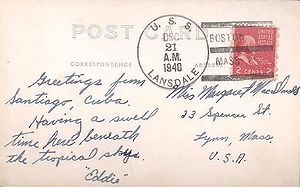 POST CARD
CORRESPONDENCE
U. S. S.
DEC
21
A.M.
1940
LANSDALE
BOSTON
MASS.
2 CENTS 2
Greetings from
Santiago, Cuba.
Having a swell
time here beneath
the tropical skys.
"Eddie"
Miss Margaret MacDonald
23 Spencer St.
Lynn, Mass.
U.S.A.